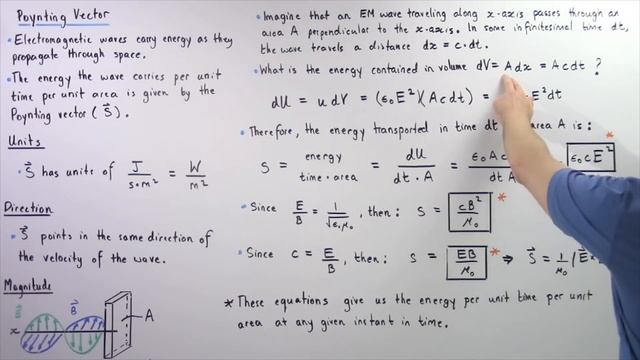 Poynting Vector
• Electromagnetic waves carry energy as they
propagate through space.
• The energy the wave carries per unit
time per unit area is given by the
Poynting vector (S⃗).
Units
• S⃗ has units of J/s·m² = W/m²
Direction
• S⃗ points in the same direction of
the velocity of the wave.
Magnitude
E⃗ B⃗
x A
• Imagine that an EM wave traveling along x-axis passes through an
area A perpendicular to the x-axis. In some infinitesimal time dt,
the wave travels a distance dx = c·dt.
• What is the energy contained in volume dV = A dx = A c dt ?
dU = u dV = (ε₀E²)(A c dt) = E² dt
• Therefore, the energy transported in time dt area A is :
S = energy/time·area = dU/dt·A = ε₀Ac/dtA ε₀cE² *
• Since E/B = 1/√ε₀μ₀, then : S = cB²/μ₀ *
• Since c = E/B, then : S = EB/μ₀ * ⇒ S⃗ = 1/μ₀ (E⃗ ×
* These equations give us the energy per unit time per unit
area at any given instant in time.